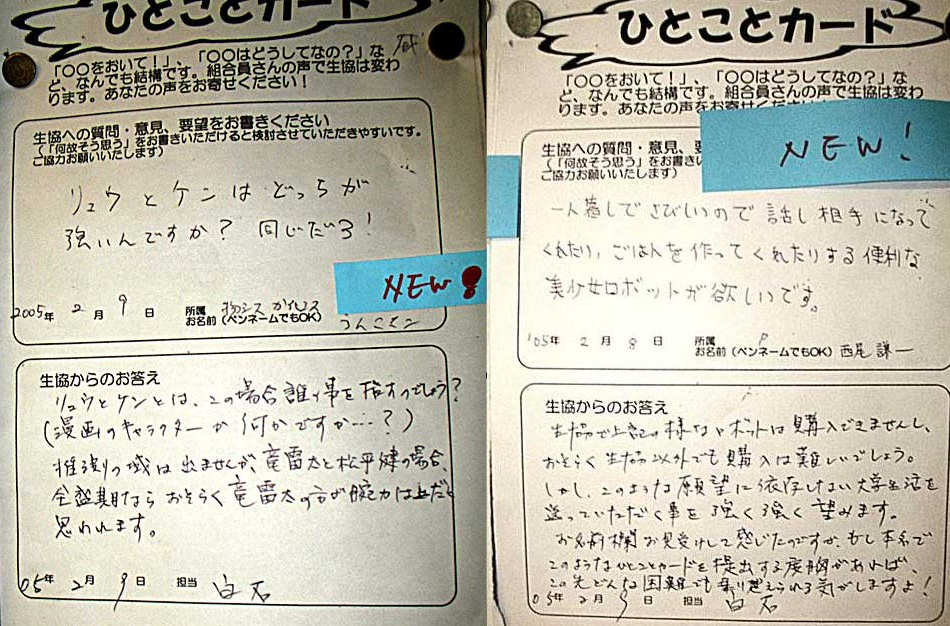 ひとことカード
「○○をおいて！」、「○○はどうしてなの？」な
ど、なんでも結構です。組合員さんの声で生協は変わ
ります。あなたの声をお寄せください！
生協への質問・意見、要望をお書きください
（「何故そう思う」をお書きいただけると検討させていただきやすいです。
ご協力お願いいたします）
リュウとケンはどっちが
強いんですか？ 同じだろ！
NEW!
2005年 2月 9日
所属
お名前（ペンネームでもOK）
生協からのお答え
リュウとケンとは、この場合誰の事を指すのでしょう？
（漫画のキャラクターか何かですか…？）
推測の域は出ませんが、竜雷太と松平健の場合、
全盛期ならおそらく竜雷太の方が腕力は上だと
思われます。
05年 2月 9日 担当 白石
ひとことカード
「○○をおいて！」、「○○はどうしてなの？」な
ど、なんでも結構です。組合員さんの声で生協は変わ
ります。あなたの声をお寄せください！
NEW!
生協への質問・意見、要
（「何故そう思う」をお書
ご協力お願いいたします）
一人暮しでさびしいので話し相手になって
くれたり、ごはんを作ってくれたりする便利な
美少女ロボットが欲しいです。
'05年 2月 8日
所属
お名前（ペンネームでもOK） 西尾謙一
生協からのお答え
生協で上記の様なロボットは購入できませんし、
おそらく生協以外でも購入は難しいでしょう。
しかし、このような願望に依存しない大学生活を
送っていただく事を強く強く望みます。
お名前欄お見受けして感じたのですが、もし本名で
このようなひとことカードを提出する度胸があれば、
この先どんな困難でも乗り越えられる気がしますよ！
05年 2月 9日 担当 白石